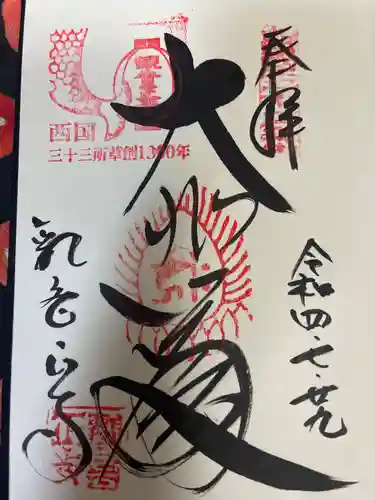 奉拝
大悲閣
西国
三十三所草創1300年
令和四・七・廿九
観音正寺